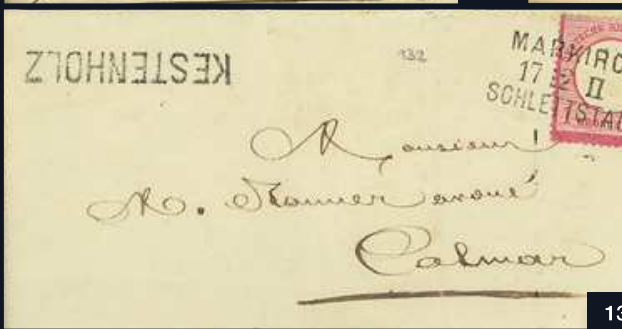 KESTENHOLZ
132
MARKIRC
17 12 II
SCHLETTSTAD
Monsieur
M. avoué
Colmar
13